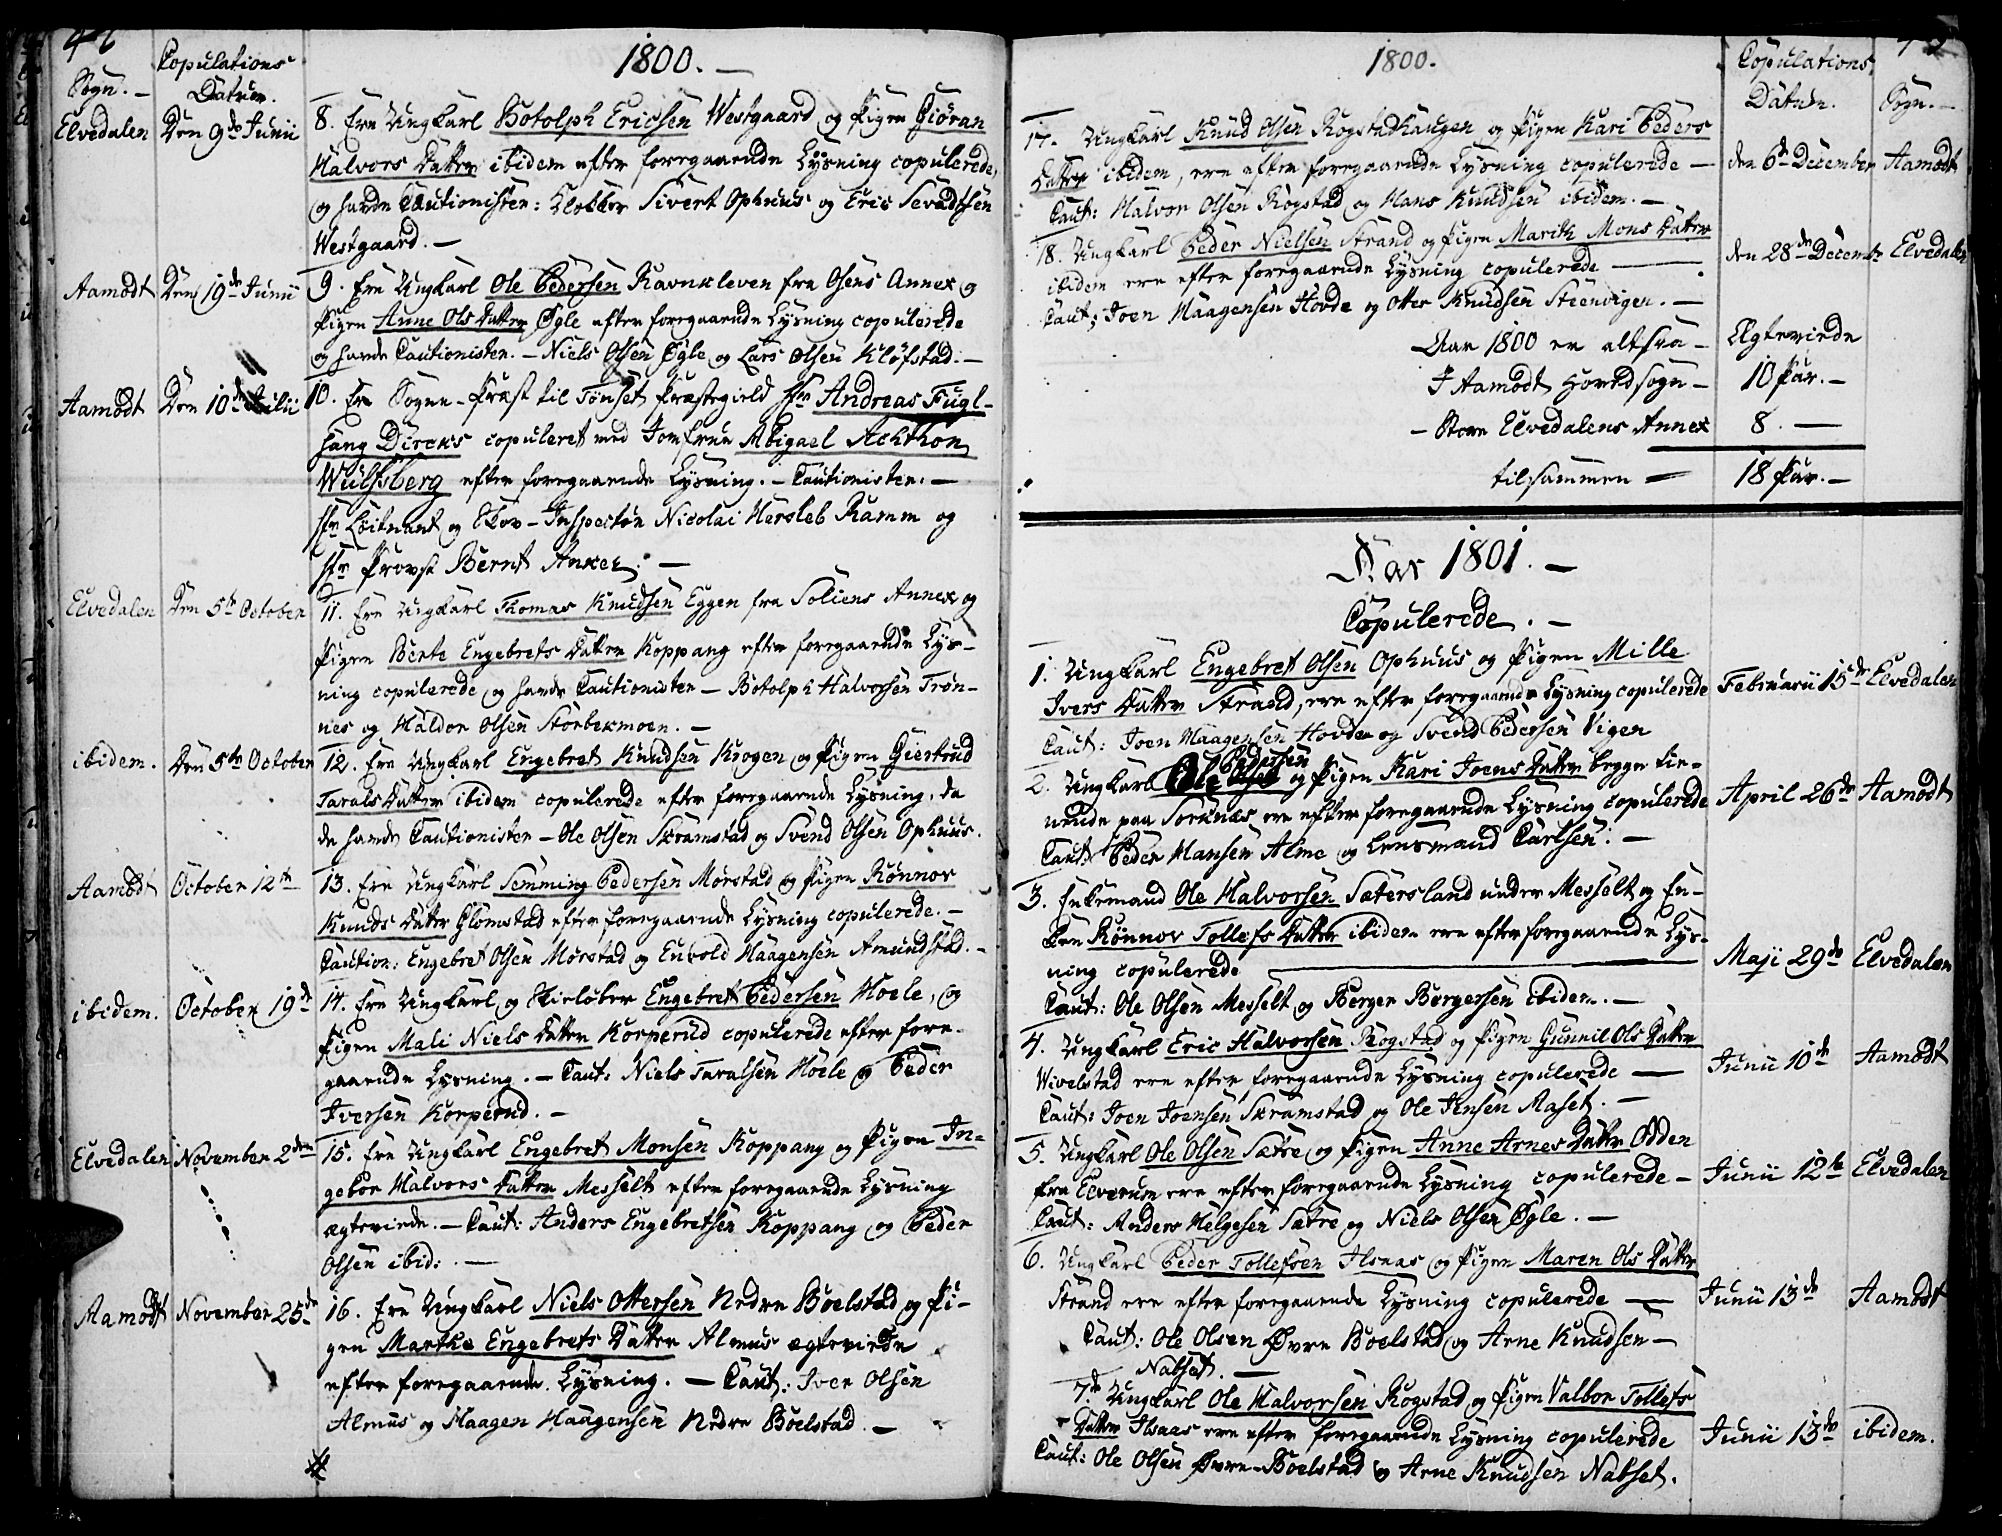 Sogn. Copulations Datum. 1800.
Elvedalen Den 9de Junii 8. Ere Ungkarl Botolph Ericsen Westgaard og Pigen Giøran
Halvors Datter ibidem efter foregaaende Lysning copulerede,
og havde Cautionister: Klokker Sivert Ophuus og Eric Sevaldsen
Westgaard. —
Aamodt Den 19de Junii 9. Ere Ungkarl Ole Pedersen Ravnkleven fra Osens Annex og
Pigen Anne Ols Datter Øgle efter foregaaende Lysning copulerede
og havde Cautionister. — Niels Olsen Øgle og Lars Olsen Kløfstad. —
Aamodt Den 10de Julii 10. Er Sogne-Præst til Tønset Præstegield Hr Andreas Fugl-
sang Dircks copuleret med Jomfrue Abigael Achthon
Wulfsberg efter foregaaende Lysning. — Cautionister. —
Hr Løitnant og Skov-Inspectør Nicolai Hersleb Ramm og
Hr Provst Bernt Anker. —
Elvedalen Den 5te October 11. Ere Ungkarl Thomas Knudsen Eggen fra Soliens Annex og
Pigen Berte Engebrets Datter Koppang efter foregaaende Lys-
ning copulerede og havde Cautionister — Botolph Halvorsen Trøn-
nes og Haldor Olsen Storbekmoen. —
ibidem. Den 5te October 12. Ere Ungkarl Engebret Knudsen Krogen og Pigen Giertrud
Tarals Datter ibidem copulerede efter foregaaende Lysning, da
de havde Cautionister — Ole Olsen Skramstad og Svend Olsen Ophuus.
Aamodt October 12te 13. Ere Ungkarl Semming Pedersen Mørstad og Pigen Rønnov
Knuds Datter Glomstad efter foregaaende Lysning copulerede. —
Caution: Engebret Olsen Mørstad og Envold Haagensen Amundstad. —
ibidem. October 19de 14. Ere Ungkarl og Skieløber Engebret Pedersen Hoele, og
Pigen Mali Niels Datter Korperud copulerede efter fore-
gaaende Lysning. — Caut: Niels Taralsen Hoele og Peder
Iversen Korperud. —
Elvedalen November 2den 15. Ere Ungkarl Engebret Monsen Koppang og Pigen In-
gebor Halvors Datter Messelt efter foregaaende Lysning
ægteviede. — Caut: Anders Engebretsen Koppang og Peder
Olsen ibid: —
Aamodt November 25de 16. Ere Ungkarl Niels Ottersen Nedre Boelstad og Pi-
gen Marthe Engebrets Datter Almus ægteviede
efter foregaaende Lysning. — Caut: Iver Olsen
Almus og Haagen Haagensen Nedre Boelstad. —
1800. Copulations Datum. Sogn. —
17. Ungkarl Knud Olsen Rogstadhaugen og Pigen Kari Peders
Datter ibidem, ere efter foregaaende Lysning copulerede — den 6te December Aamodt
Caut: Halvor Olsen Rogstad og Hans Knudsen ibidem. —
18. Ungkarl Peder Nielsen Strand og Pigen Marith Mons Datter
ibidem ere efter foregaaende Lysning copulerede — den 28de Decembr Elvedalen
Caut; Joen Haagensen Hovde og Otter Knudsen Steenvigen. —
Aar 1800 er altsaa — Ægteviede
I Aamodt Hovedsogn — 10 Par. —
— Store Elvedalens Annex 8. —
tilsammen = 18 Par. —
Aar 1801. —
Copulerede. —
1. Ungkarl Engebret Olsen Ophuus og Pigen Mille
Ivers Datter Strand, ere efter foregaaende Lysning copulerede Februarii 15de Elvedalen
Caut: Joen Haagensen Hovde og Svend Pedersen Vigen
2. Ungkarl Ole Pedersen og Pigen Kari Joens Datter begge tie-
nende paa Sorknæs ere efter foregaaende Lysning copulerede April 26de Aamodt
Caut: Peder Hansen Alme og Lensmand Carlsen: —
3. Enkemand Ole Halvorsen Sætersland under Messelt og En-
ken Rønnov Tollefs Datter ibidem ere efter foregaaende Lys-
ning copulerede — Maji 29de Elvedalen
Caut: Ole Olsen Messelt og Berger Bergersen ibidem. —
4. Ungkarl Eric Halvorsen Rogstad og Pigen Gunnil Ols Datter
Wivelstad ere efter foregaaende Lysning copulerede — Junii 10de Aamodt
Caut: Joen Joensen Skramstad og Ole Jensen Aaset. —
5. Ungkarl Ole Olsen Sætre og Pigen Anne Arnes Datter Odden
fra Elverum ere efter foregaaende Lysning copulerede — Junii 12te Elvedalen
Caut: Anders Helgesen Sætre og Niels Olsen Øgle. —
6. Ungkarl Peder Tollefsen Ilsaas og Pigen Maren Ols Datter
Strand ere efter foregaaende Lysning copulerede — Junii 13de Aamodt
Caut: Ole Olsen Øvre Boelstad og Arne Knudsen —
Nabset. —
7de Ungkarl Ole Halvorsen Rogstad og Pigen Valbor Tollefs
Datter Ilsaas ere efter foregaaende Lysning copulerede Junii 13de ibidem.
Caut: Ole Olsen Øvre-Boelstad og Arne Knudsen Nabset.